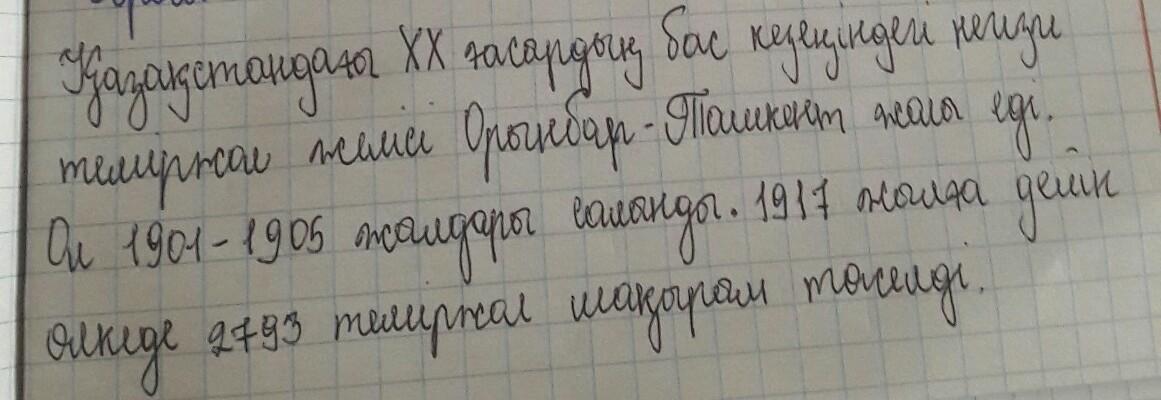 Қазақстандағы XX ғасардың бас кезеңіндегі негізгі
теміржол желісі Орынбор-Ташкент жолы еді.
Ол 1901-1905 жылдары салынды. 1917 жылға дейін
өлкеде 2793 теміржол шақырым төселді.